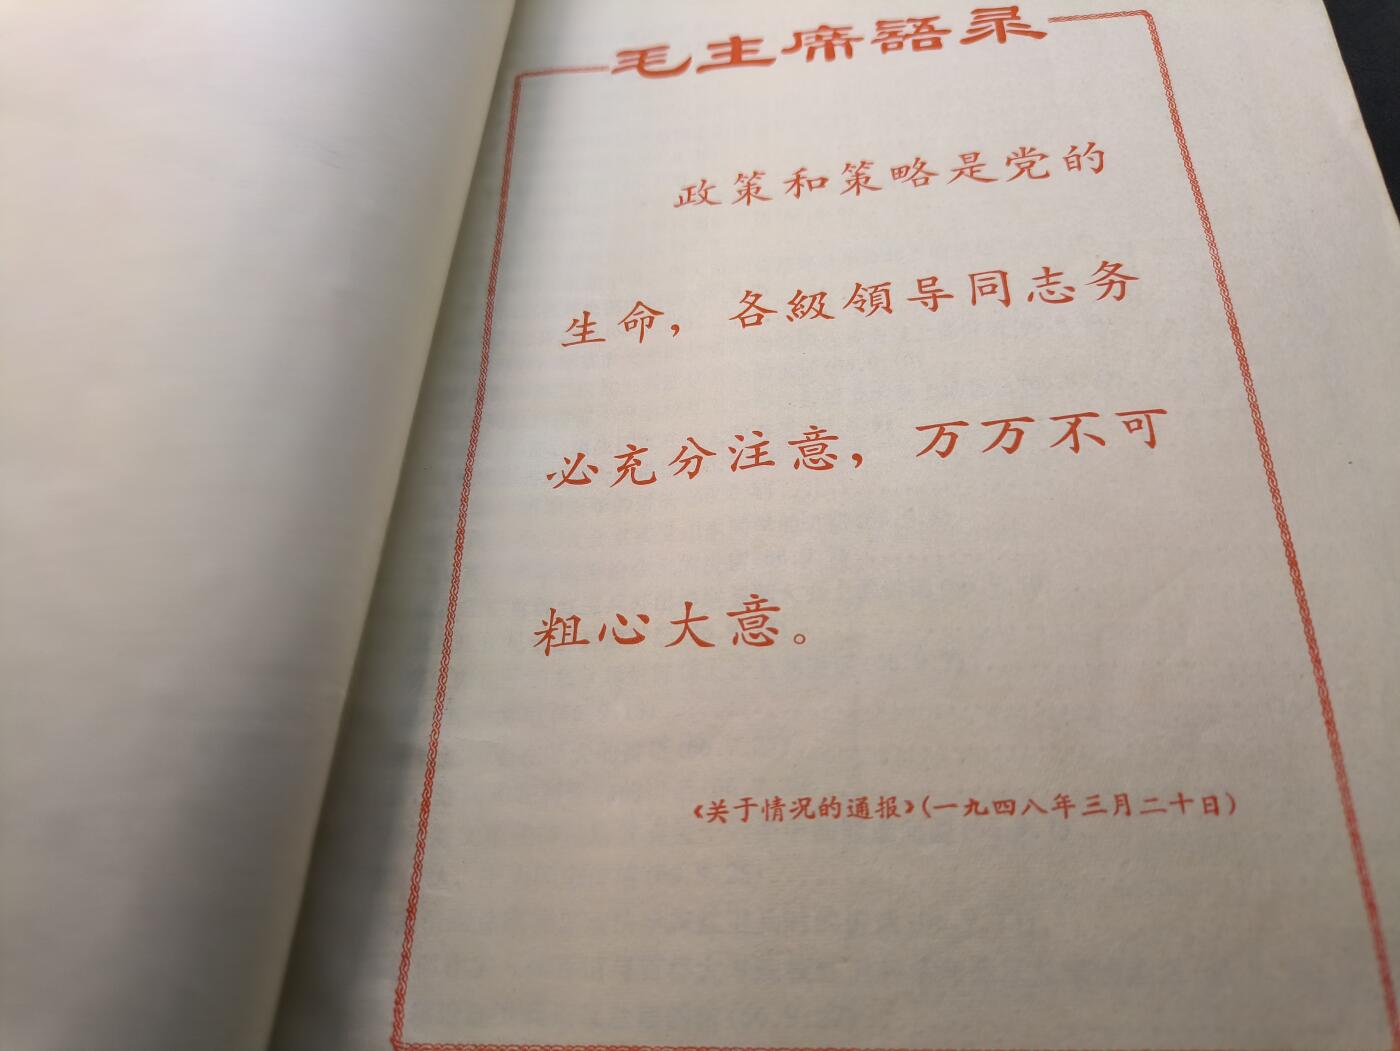 毛主席語录
政策和策略是党的
生命，各級領导同志务
必充分注意，万万不可
粗心大意。
《关于情况的通报》(一九四八年三月二十日)